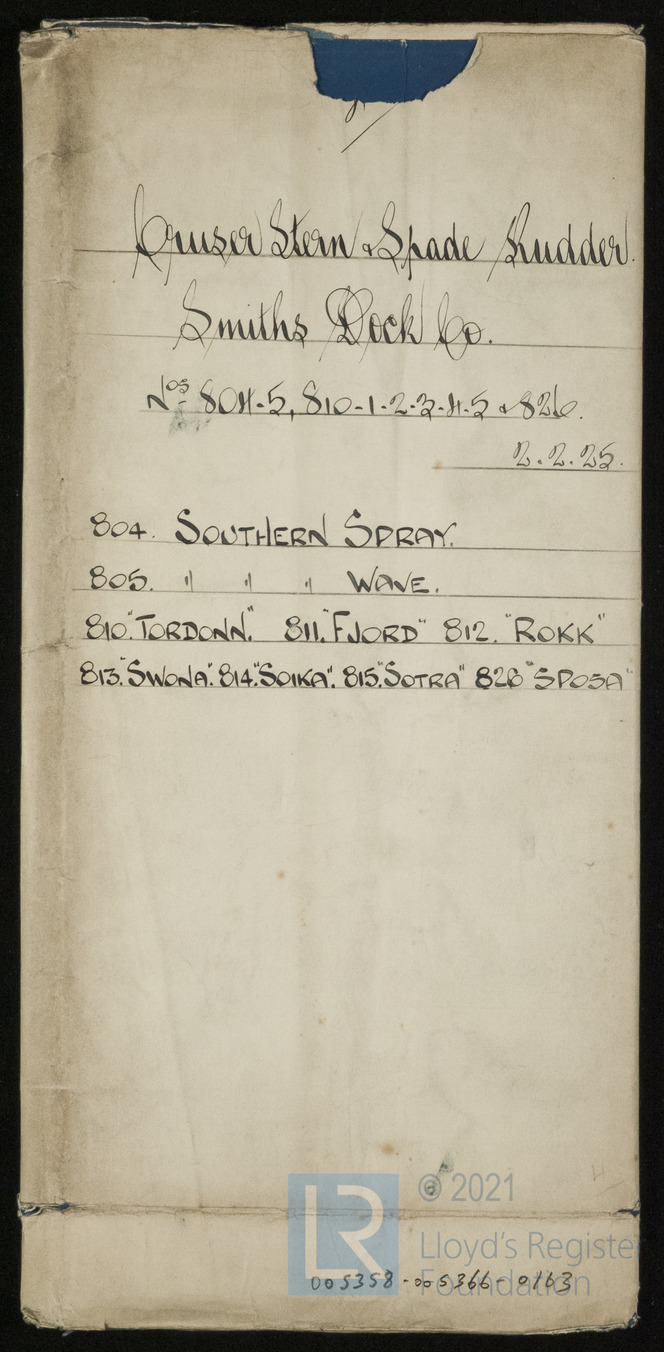 Cruiser Stern & Spade Rudder.
Smiths Dock Co.
Nos 804-5, 810-1-2-3-4-5 & 826.
2.2.25.
804. SOUTHERN SPRAY.
805. " " " WAVE.
810."TORDONN." 811."FJORD" 812. "ROKK"
813."SWONA". 814."SOIKA". 815."SOTRA" 826 "SPOSA"
© 2021
LR
Lloyd's Register
Foundation
005358-005366-0163